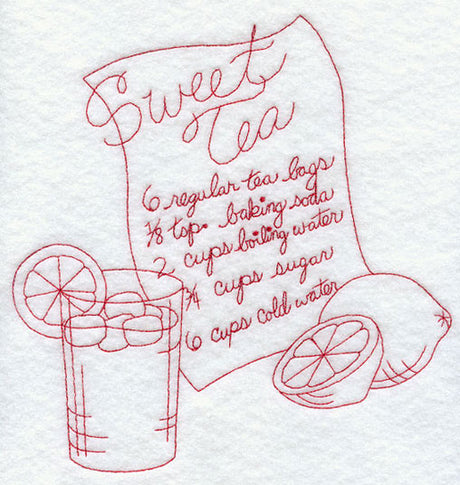 Sweet
Tea
6 regular tea bags
⅛ tsp. baking soda
2 cups boiling water
¾ cups sugar
6 cups cold water